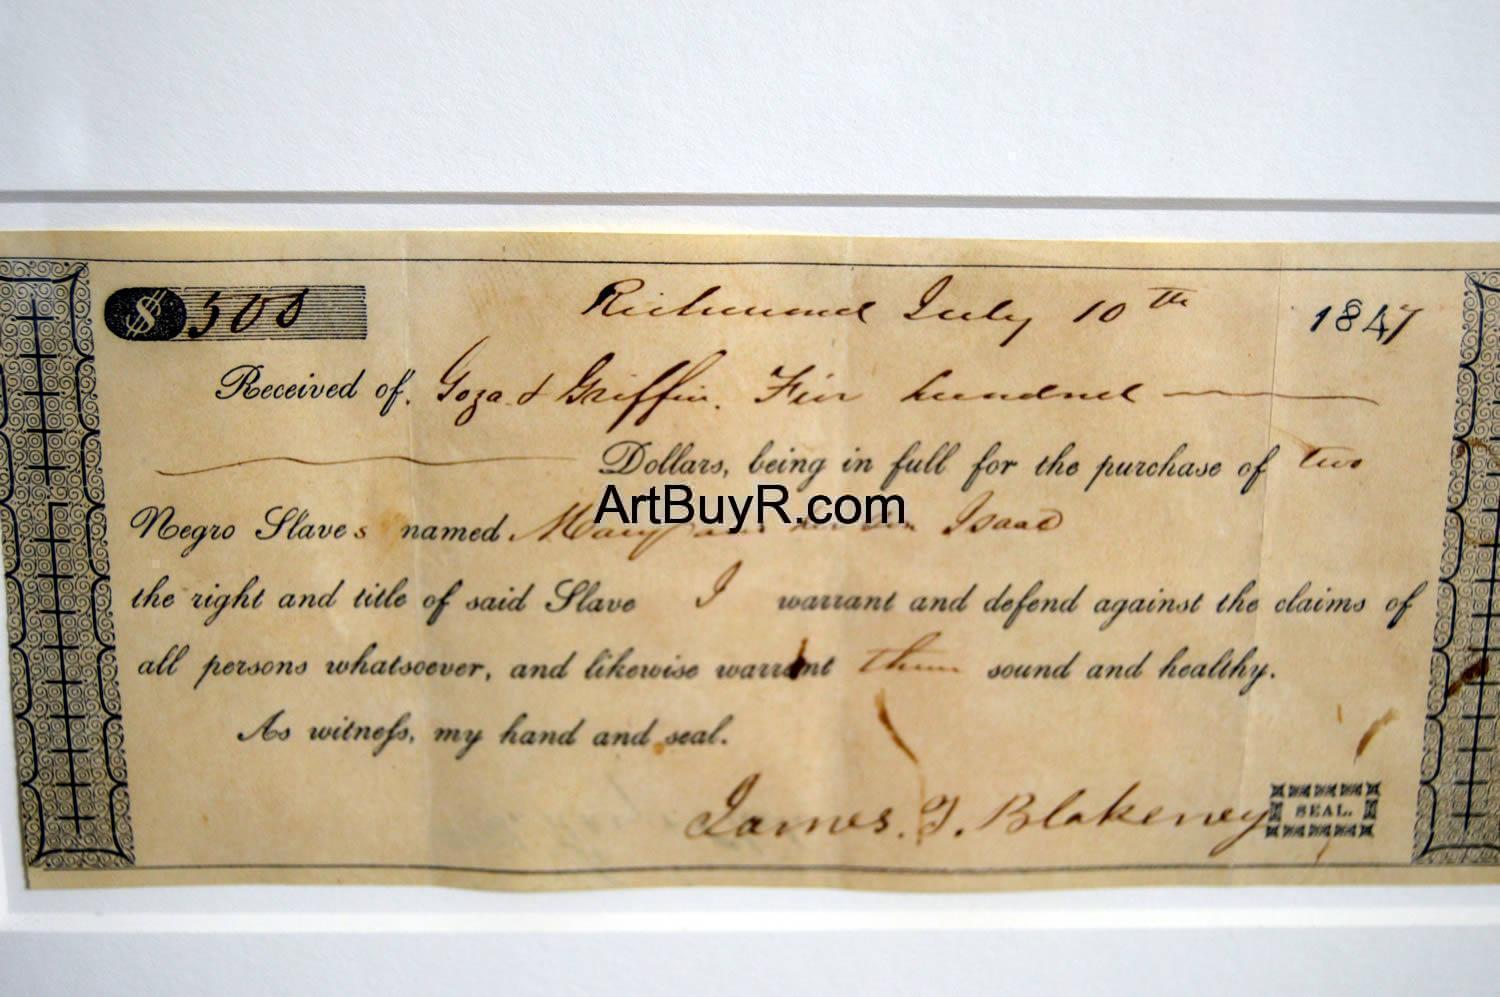 $ 500 Richmond July 10th 1847
Received of Goza & Griffin. Five hundred
Dollars, being in full for the purchase of two
Negro Slaves named Mary Isaac
ArtBuyR.com
the right and title of said Slave I warrant and defend against the claims of
all persons whatsoever, and likewise warrant them sound and healthy.
As witness, my hand and seal.
James. T. Blakeney SEAL.